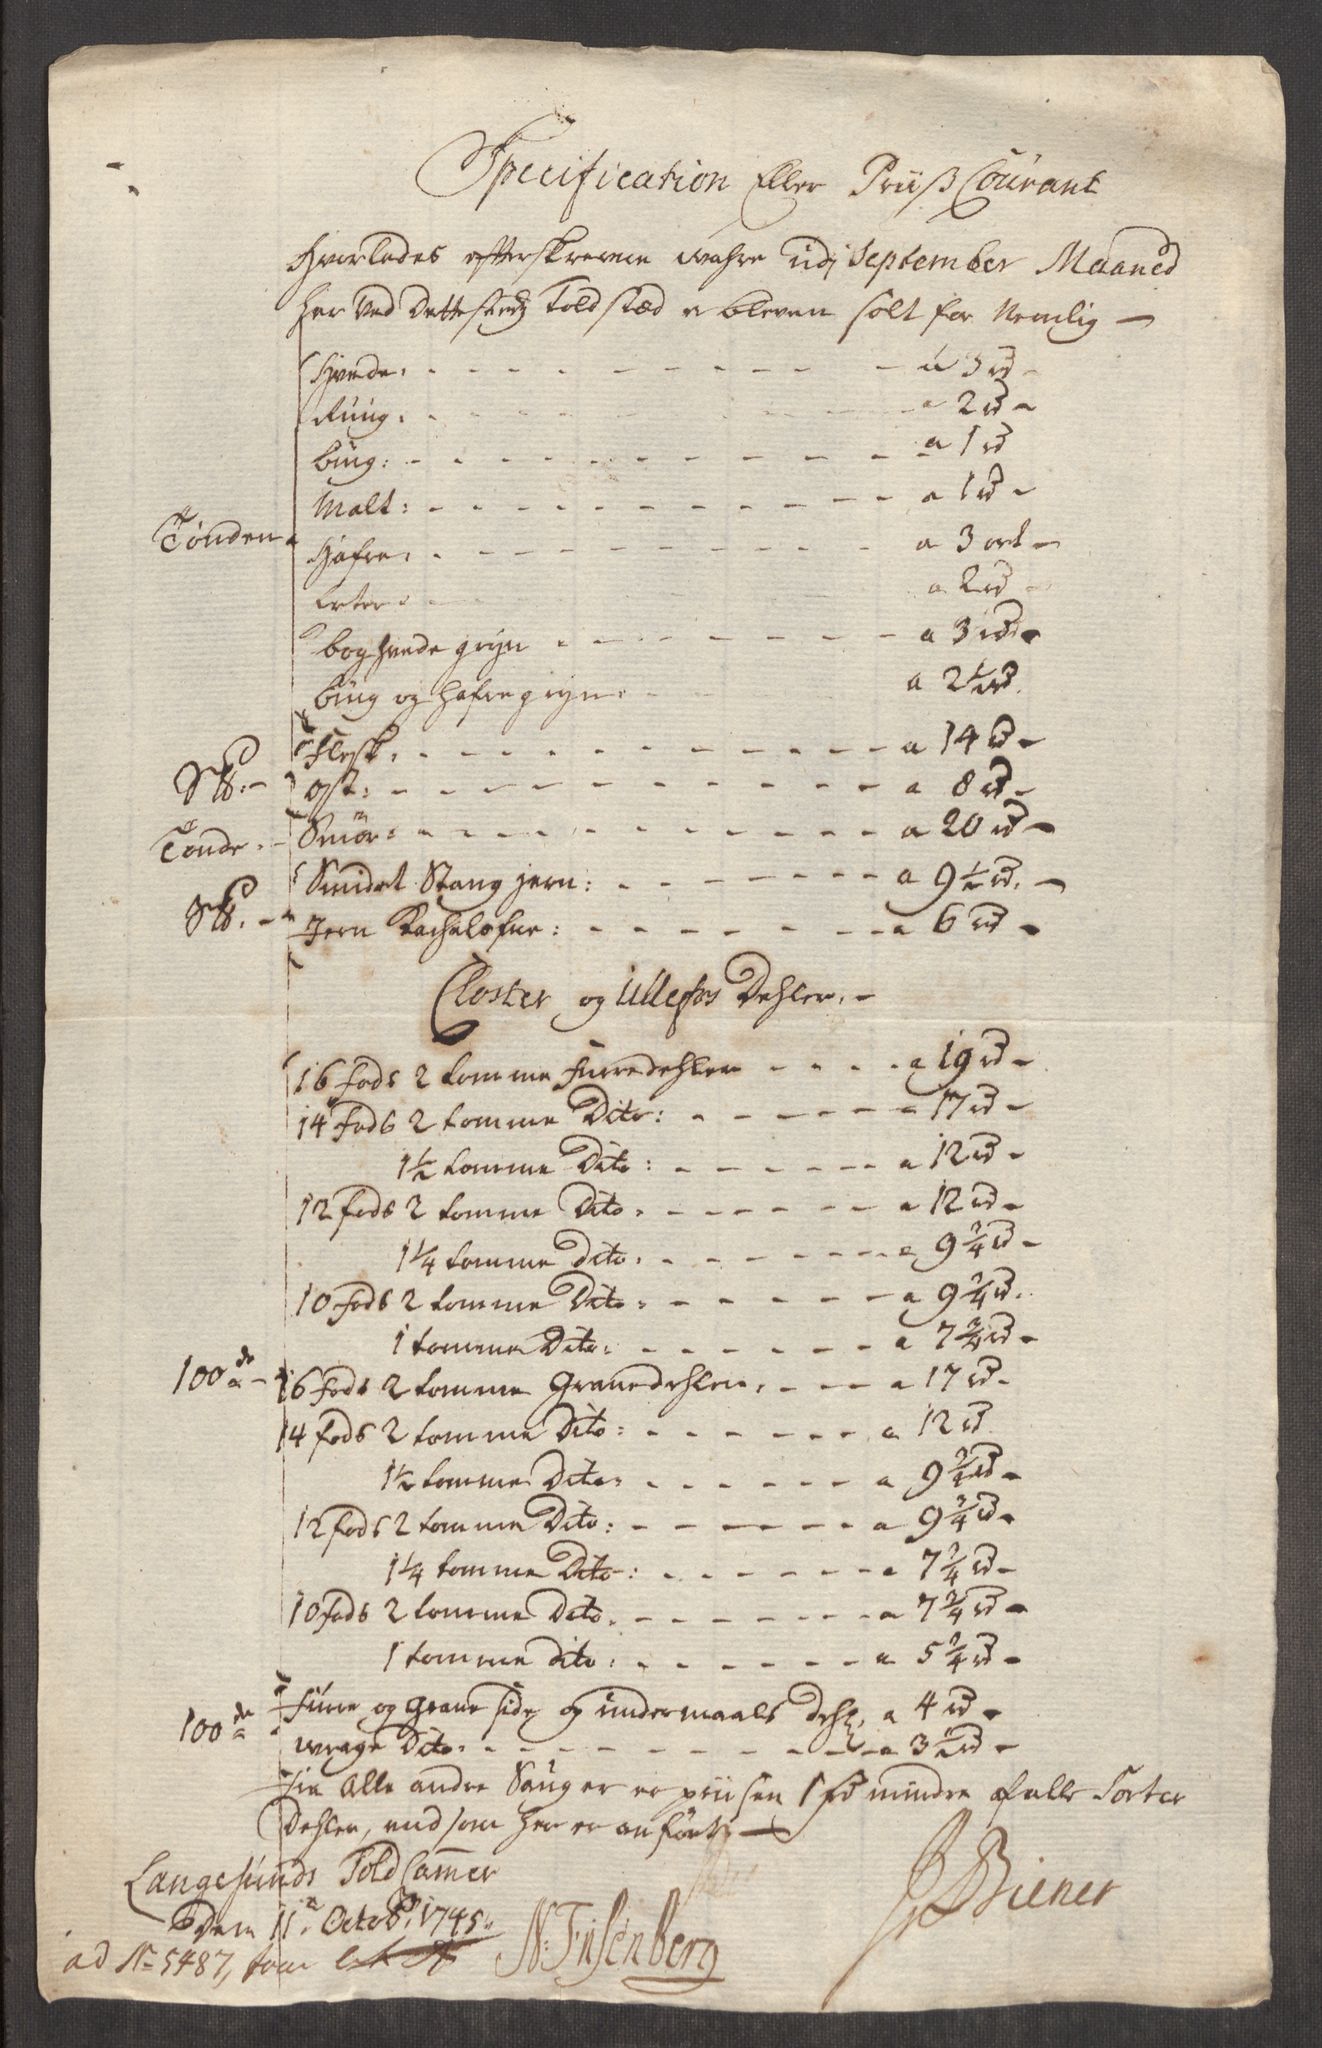 Specification Eller Priiß Courant
Hvorledes efterskrevne wahre udj September Maaned
her ved Dette Toldstæd er bleven solt for Nemlig —
Hvede: a 3 rd
Rúug: a 2 rd
büug: a 1 rd
Malt: a 1 rd
Tönden
Hafre: a 3 ort
Erter: a 2 rd
boghvede gryn a 3 rd
büug og hafregryn: a 2½ rd
Flesk: a 14 rd
S℔:
ost: a 8 rd
Tønde: Smör: a 20 rd
Smidet Stang jern: a 9½ rd
S℔: Jern Kachelofne: a 6 rd
Closter og Ullefos Dehler:
16 fods 2 tomme furredehler a 19 rd
14 fods 2 tomme Dito: a 17 rd
1½ tomme Dito: a 12 rd
12 fods 2 tomme Dito: a 12 rd
1¼ tomme Dito: a 9¾ rd
10 fods 2 tomme Dito: a 9¾ rd
1 tomme Dito: a 7¾ rd
100de a 16 fods 2 tomme Granedehler: a 17 rd
14 fods 2 tomme Dito: a 12 rd
1½ tomme Dito: a 9¾ rd
12 fods 2 tomme Dito: a 9¾ rd
1¼ tomme Dito: a 7¾ rd
10 fods 2 tomme Dito: a 7¾ rd
1 tomme dito: a 5¾ rd
100de a furre og Grane side og undermaals Dehl: a 4 rd
wrage Dito: a 3½ rd
Fra Alle andre Sauger er priisen 1 rd mindre af alle Sorter
Dehler, end som her er anført
Langesunds Told Cammer
Den 11te Octobr: 1745
J Biener
N: Fiisenberg
ad No 5487,